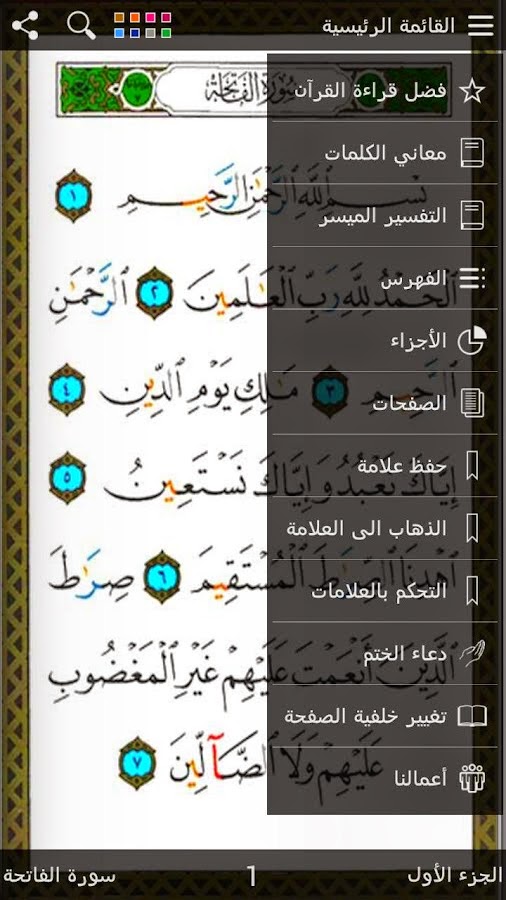 القائمة الرئيسية
فضل قراءة القرآن
معاني الكلمات
التفسير الميسر
الفهرس
الأجزاء
الصفحات
حفظ علامة
الذهاب الى العلامة
التحكم بالعلامات
دعاء الختم
تغيير خلفية الصفحة
أعمالنا
سُورَةُ الفَاتِحَة
بِسْمِ اللَّهِ الرَّحْمَٰنِ الرَّحِيمِ ١
الْحَمْدُ لِلَّهِ رَبِّ الْعَالَمِينَ ٢ الرَّحْمَٰنِ
الرَّحِيمِ ٣ مَالِكِ يَوْمِ الدِّينِ ٤
إِيَّاكَ نَعْبُدُ وَإِيَّاكَ نَسْتَعِينُ ٥
اهْدِنَا الصِّرَاطَ الْمُسْتَقِيمَ ٦ صِرَاطَ
الَّذِينَ أَنْعَمْتَ عَلَيْهِمْ غَيْرِ الْمَغْضُوبِ
عَلَيْهِمْ وَلَا الضَّآلِّينَ ٧
الجزء الأول 1 سورة الفاتحة